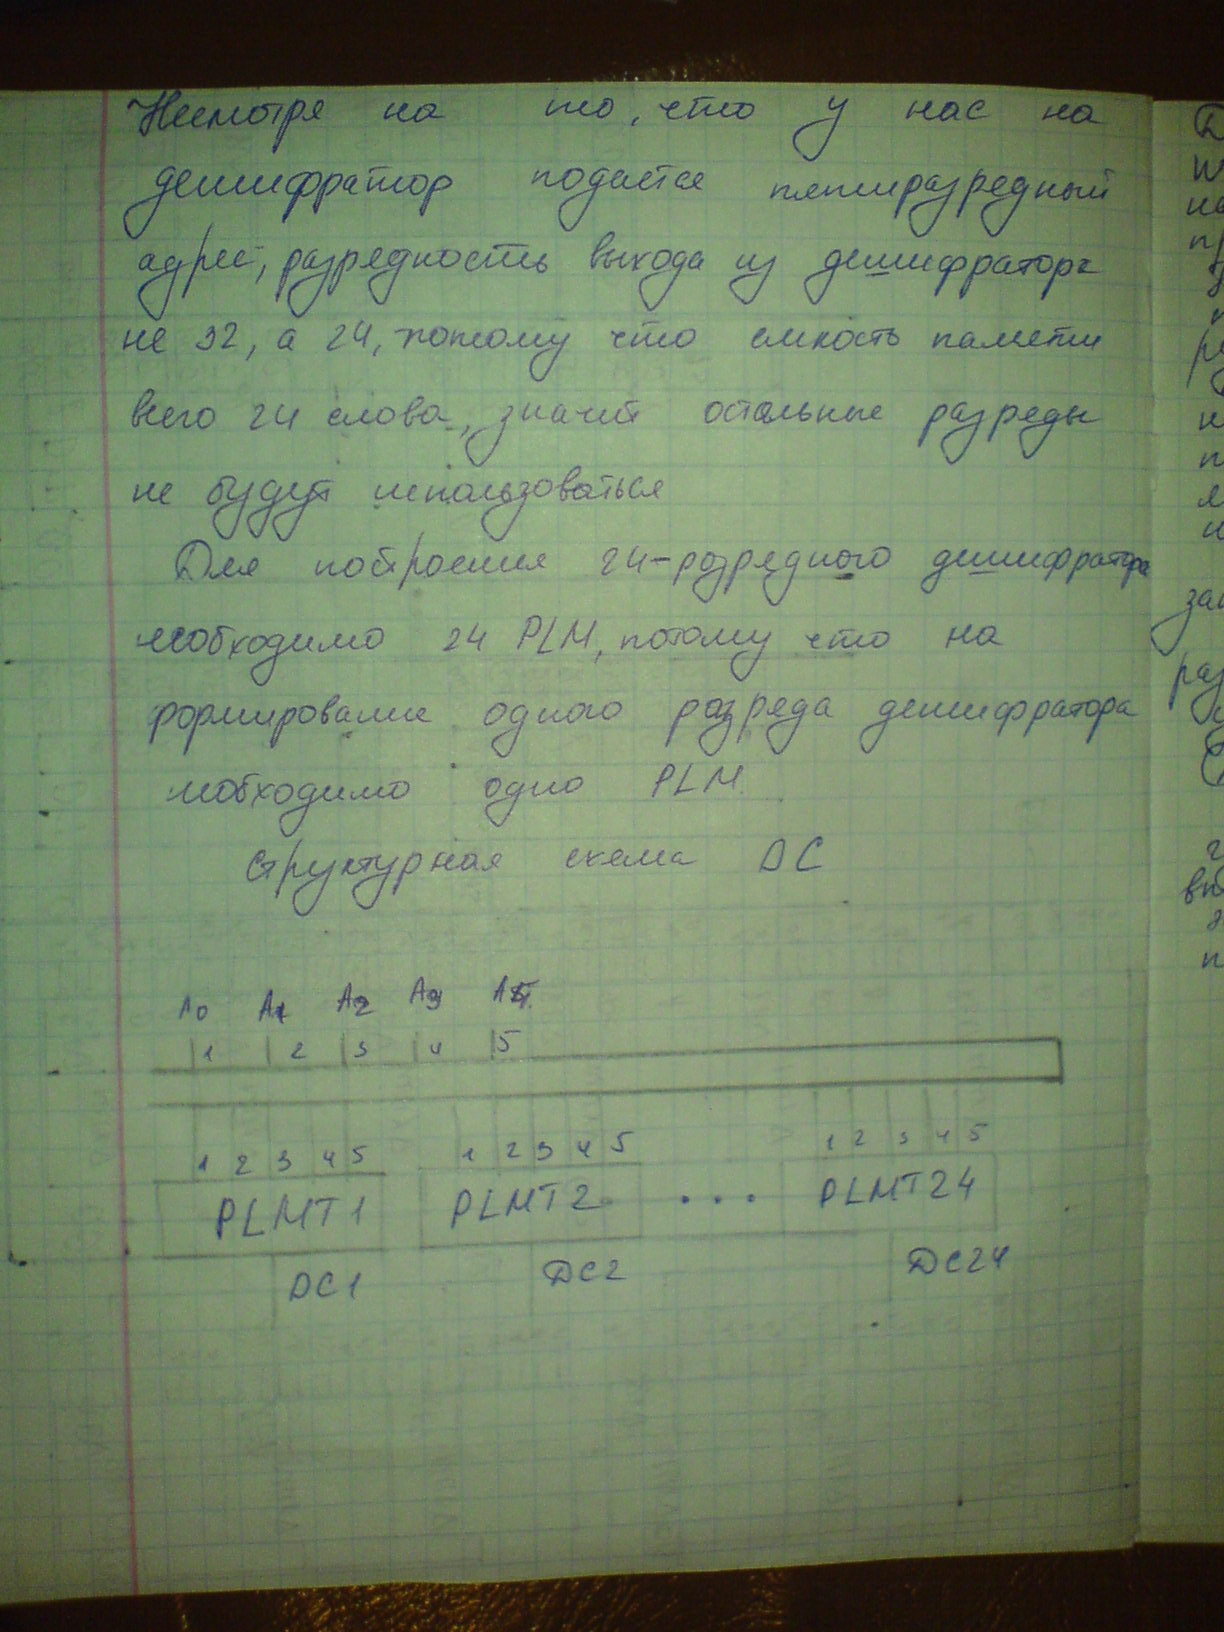 Несмотря на то, что у нас на
дешифратор подается пятиразрядный
адрес, разрядность выхода из дешифратора
не 32, а 24, потому что емкость памяти
всего 24 слова, значит остальные разряды
не будут использоваться
Для построения 24-разрядного дешифратора
необходимо 24 PLM, потому что на
формирование одного разряда дешифратора
необходимо одно PLM.
Структурная схема DC
A0 A1 A2 A3 A4
1 2 3 4 5
1 2 3 4 5 1 2 3 4 5 1 2 3 4 5
PLMT1 PLMT2 ... PLMT24
DC1 DC2 DC24